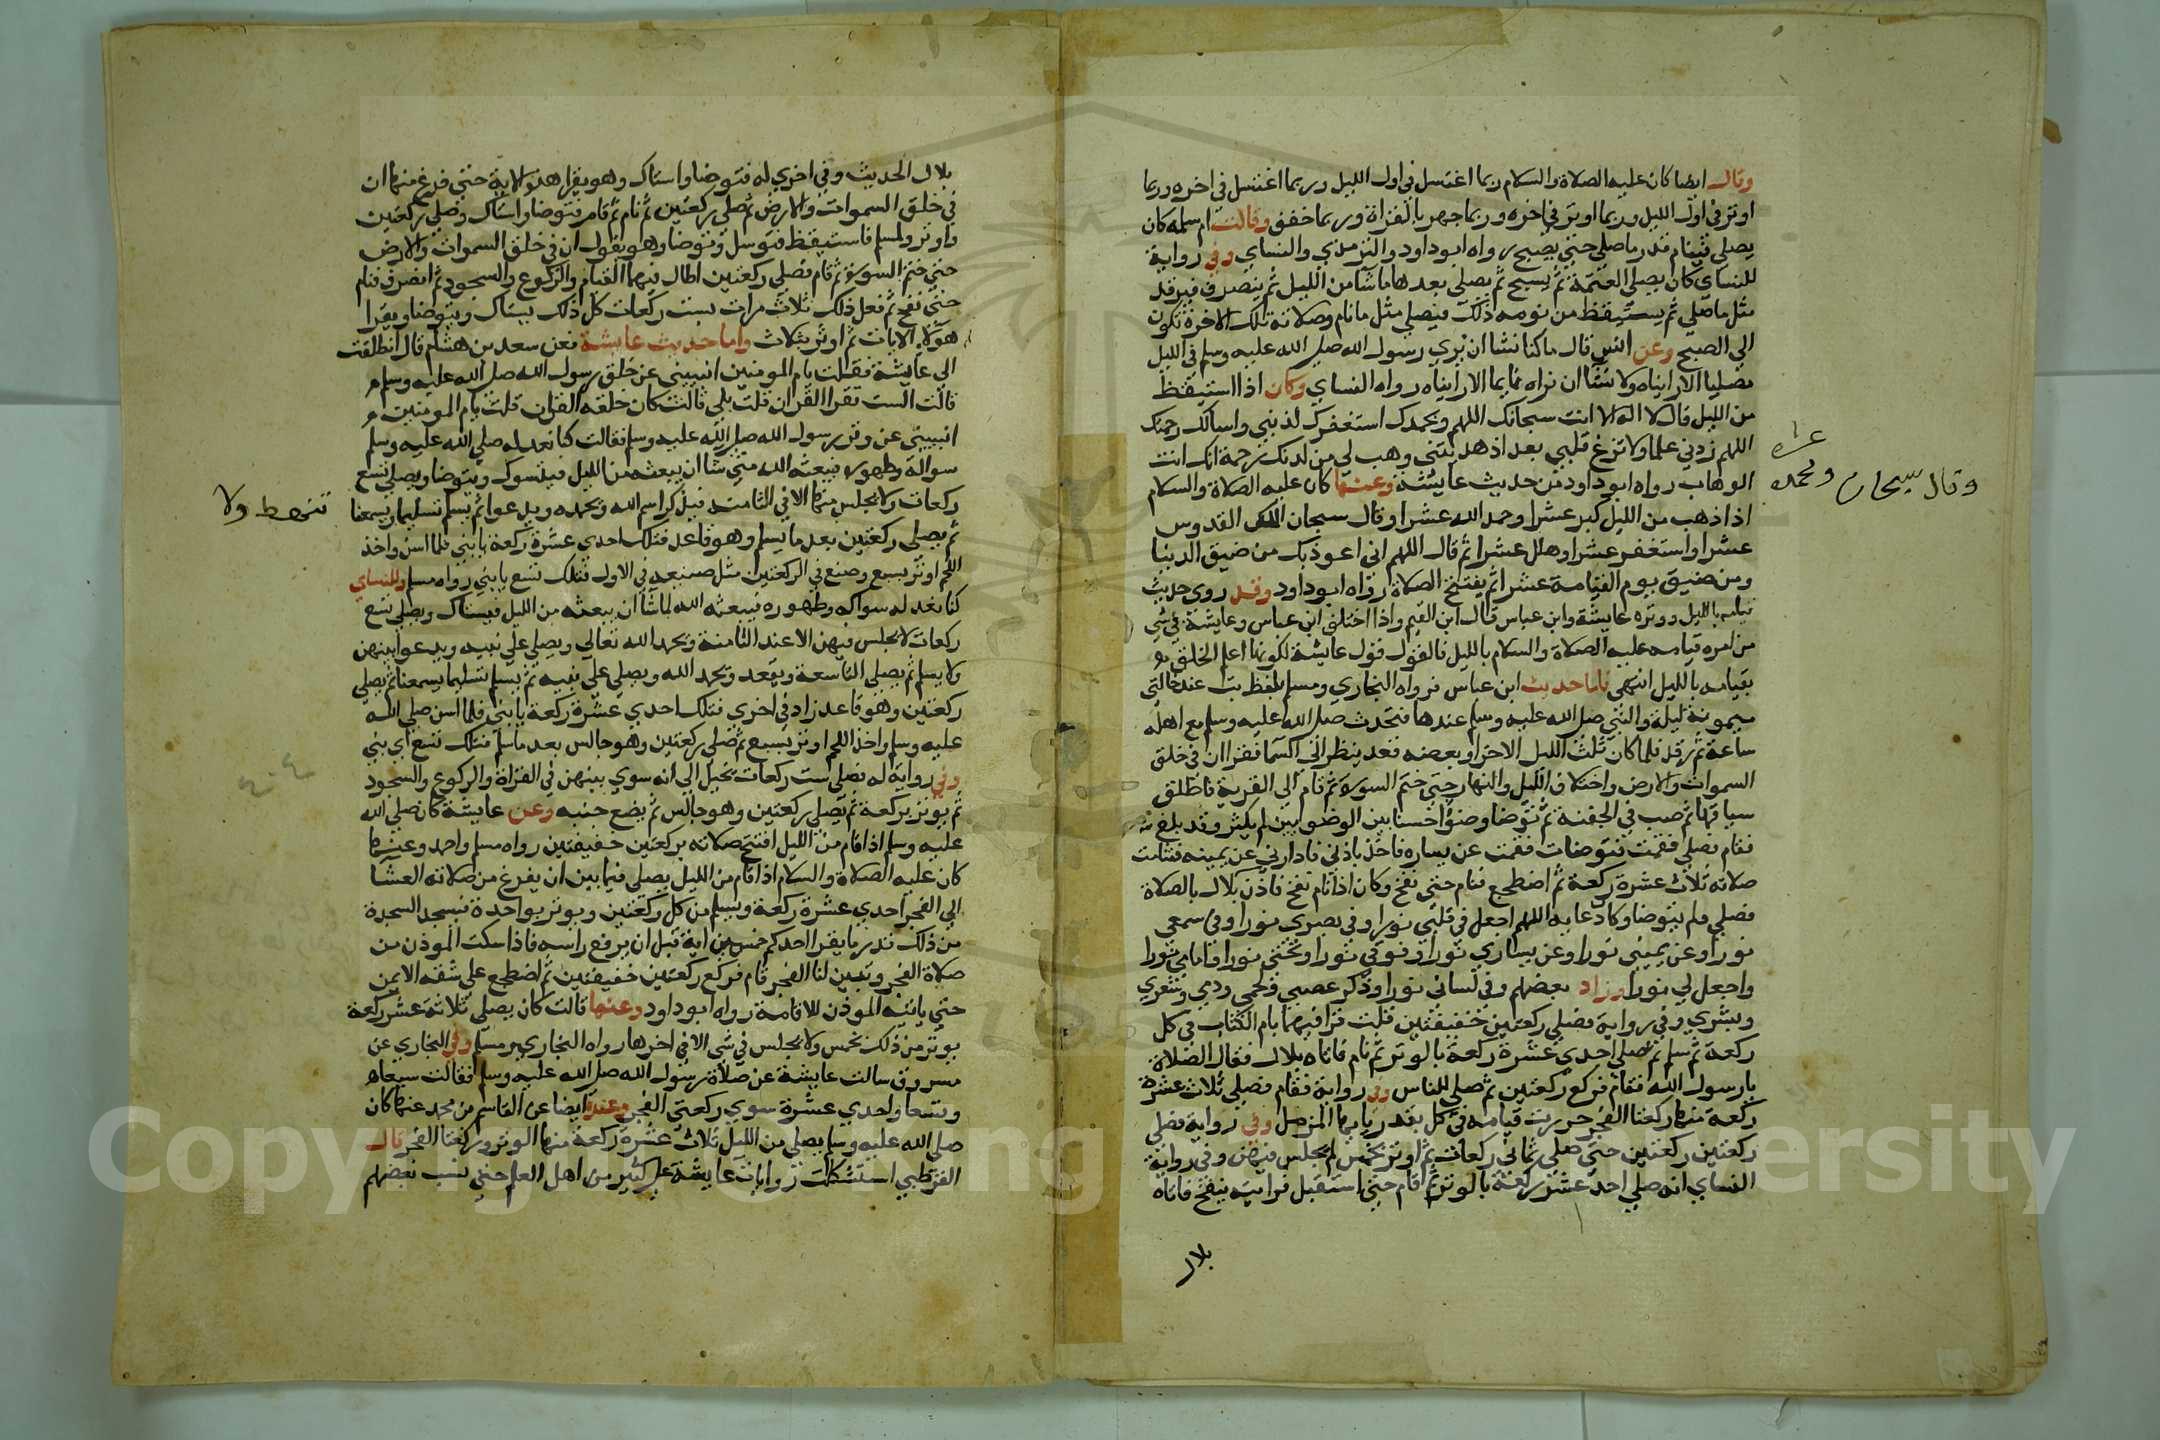 وقال ايضا كان عليه الصلاة والسلام ربما اغتسل في اول الليل وربما اغتسل في اخره وربما
اوتر في اول الليل وربما اوتر في اخره وربما جهر بالقراة وربما خفف وقالت ام سلمه كان
يصلي ثم ينام قدر ما صلي حتي يصبح رواه ابو داود والترمذي والنساي وفي رواية
للنساي كان يصلي العتمة ثم يسبح ثم يصلي بعدها ما شا من الليل ثم ينصرف فيرقد
مثل ما صلي ثم يستيقظ من نومه ذلك فيصلي مثل ما نام وصلاته تلك الاخرة تكون
الي الصبح وعن انس قال ما كنا نشا ان نري رسول الله صلى الله عليه وسلم في الليل
مصليا الا رايناه ولا نشا ان نراه نايما الا رايناه رواه النساي وكان اذا استيقظ
من الليل قال لا اله الا انت سبحانك اللهم وبحمدك استغفرك لذنبي واسالك رحمتك
اللهم زدني علما ولا تزغ قلبي بعد اذ هديتني وهب لي من لدنك رحمة انك انت
الوهاب رواه ابو داود من حديث عايشة وعنها كان عليه الصلاة والسلام
اذا ذهب من الليل كبر عشرا وحمد الله عشرا وقال سبحان الملك القدوس
عشرا واستغفر عشرا وهلل عشرا ثم قال اللهم اني اعوذ بك من ضيق الدنيا
ومن ضيق يوم القيامة عشرا ثم يفتتح الصلاة رواه ابو داود وقد روي حديث
قيامه بالليل ووتره عايشة وابن عباس قال ابن القيم واذا اختلف ابن عباس وعايشة في شي
من امره قيامه عليه الصلاة والسلام بالليل فالقول قول عايشة لكونها اعلم الخلق
بقيامه بالليل انتهي فاما حديث ابن عباس فرواه البخاري ومسلم بلفظ بت عند خالتي
ميمونة ليلة والنبي صلى الله عليه وسلم عندها فتحدث صلى الله عليه وسلم مع اهله
ساعة ثم رقد فلما كان ثلث الليل الاخر او بعضه فقعد ينظر الي السما فقرا ان في خلق
السموات والارض واختلاف الليل والنهار حتي ختم السورة ثم قام الي القربة فاطلق
سباقها ثم صب في الجفنة ثم توضا وضوا حسنا بين الوضوايين لم يكثر وقد بلغ
فقام فصلي فقمت فتوضات فقمت عن يساره فاخذ باذني فادارني عن يمينه فتتامت
صلاته ثلاث عشرة ركعة ثم اضطجع فنام حتي نفخ وكان اذا نام نفخ فاذن بلال بالصلاة
فصلي ولم يتوضا وكا دعايه اللهم اجعل في قلبي نورا وفي بصري نورا وفي سمعي
نورا وعن يميني نورا وعن يساري نورا وفوقي نورا وتحتي نورا وامامي نورا
واجعل لي نورا وزاد بعضهم وفي لساني نورا وذكر عصبي ولحمي ودمي وشعري
وبشري وفي رواية فصلي ركعتين خفيفتين قلت قرا فيهما بام الكتاب في كل
ركعة ثم سلم ثم صلي احدي عشرة ركعة بالوتر ثم نام فاتاه بلال فقال الصلاة
يا رسول الله فقام فركع ركعتين ثم صلي للناس وفي رواية فقام فصلي ثلاث عشرة
ركعة منها ركعتا الفجر حررت قيامه في كل بقدر يا ايها المزمل وفي رواية فصلي
ركعتين ركعتين حتي صلي ثماني ركعات ثم اوتر بخمس لم يجلس فيهن وفي رواية
النساي انه صلي احد عشر ركعة بالوتر ثم اقام حتي استقبل فرايته ينفخ فاتاه
بلال
عشرا
وقال سبحان وبحمده
بلال الحديث وفي اخري له فتوضا واستاك وهو يقرا هذه الاية حتي فرغ منها ان
في خلق السموات والارض ثم صلي ركعتين ثم نام ثم قام فتوضا واستاك وصلي ركعتين
واوتر ولمسلم فاستيقظ فتوسل وتوضا وهو يقول ان في خلق السموات والارض
حتي ختم السورة ثم قام فصلي ركعتين اطال فيهما القيام والركوع والسجود ثم انصرف فنام
حتي نفخ ثم فعل ذلك ثلاث مرات بست ركعات كل ذلك يستاك ويتوضا ويقرا
هولاء الايات ثم اوتر بثلاث واما حديث عايشة فعن سعد بن هشام قال انطلقت
الي عايشة فقلت يام المومنين انبيني عن خلق رسول الله صلى الله عليه وسلم
قالت الست تقرا القران قلت بلي قالت كان خلقه القران قلت يام المومنين
انبيني عن وتر رسول الله صلى الله عليه وسلم فقالت كنا نعد له صلي الله عليه وسلم
سواكه وطهوره فيبعثه الله متي شا ان يبعثه من الليل فيتسوك ويتوضا ويصلي تسع
ركعات ولا يجلس منها الا في الثامنة فيذكر اسم الله ويحمده ويدعوا ثم يسلم تسليما يسمعنا
ثم يصلي ركعتين بعد ما يسلم وهو قاعد فتلك احدي عشرة ركعة يا بني فلما اسن واخذ
اللحم اوتر بسبع وصنع في الركعتين مثل صنيعه في الاول فتلك تسع يا بني رواه مسلم وللنساي
كنا نعد له سواكه وطهوره فيبعثه الله لما شا ان يبعثه من الليل فيستاك ويصلي تسع
ركعات لا يجلس فيهن الا عند الثامنة ويحمد الله تعالي ويصلي علي نبيه ويدعوا بينهن
ولا يسلم ثم يصلي التاسعة ويقعد ويحمد الله ويصلي علي نبيه ثم يسلم تسليما يسمعنا ثم يصلي
ركعتين وهو قاعد زاد في اخري فتلك احدي عشرة ركعة يا بني فلما اسن صلي الله
عليه وسلم واخذ اللحم اوتر بسبع ثم صلي ركعتين وهو جالس بعد ما سلم فتلك تسع اي بني
وفي رواية له فصلي ست ركعات يخيل الي انه سوي بينهن في القراة والركوع والسجود
ثم يوتر بركعة ثم يصلي ركعتين وهو جالس ثم يضع جنبه وعن عايشة كان صلي الله
عليه وسلم اذا قام من الليل افتتح صلاته بركعتين خفيفتين رواه مسلم واحمد وعنها
كان عليه الصلاة والسلام اذا قام من الليل يصلي فيما بين ان يفرغ من صلاته العشا
الي الفجر احدي عشرة ركعة ويسلم من كل ركعتين ويوتر بواحدة فيسجد السجدة
من ذلك قدر ما يقرا احدكم خمسين اية قبل ان يرفع راسه فاذا سكت الموذن من
صلاة الفجر وتبين لنا الفجر قام فركع ركعتين خفيفتين ثم اضطجع علي شقه الايمن
حتي ياتيه الموذن للاقامة رواه ابو داود وعنها قالت كان يصلي ثلاثة عشر ركعة
يوتر من ذلك بخمس ولا يجلس في شي الا في اخرها رواه البخاري ومسلم وفي البخاري عن
مسروق سالت عايشة عن صلاة رسول الله صلى الله عليه وسلم فقالت سبعا
وتسعا واحدي عشرة سوي ركعتي الفجر وعنده ايضا عن القاسم بن محمد عنها كان
صلى الله عليه وسلم يصلي من الليل ثلاث عشرة ركعة منها الوتر وركعتا الفجر قال
القرطبي استشكلت روايات عايشة علي كثير من اهل العلم حتي نسب بعضهم
تنهض ولا